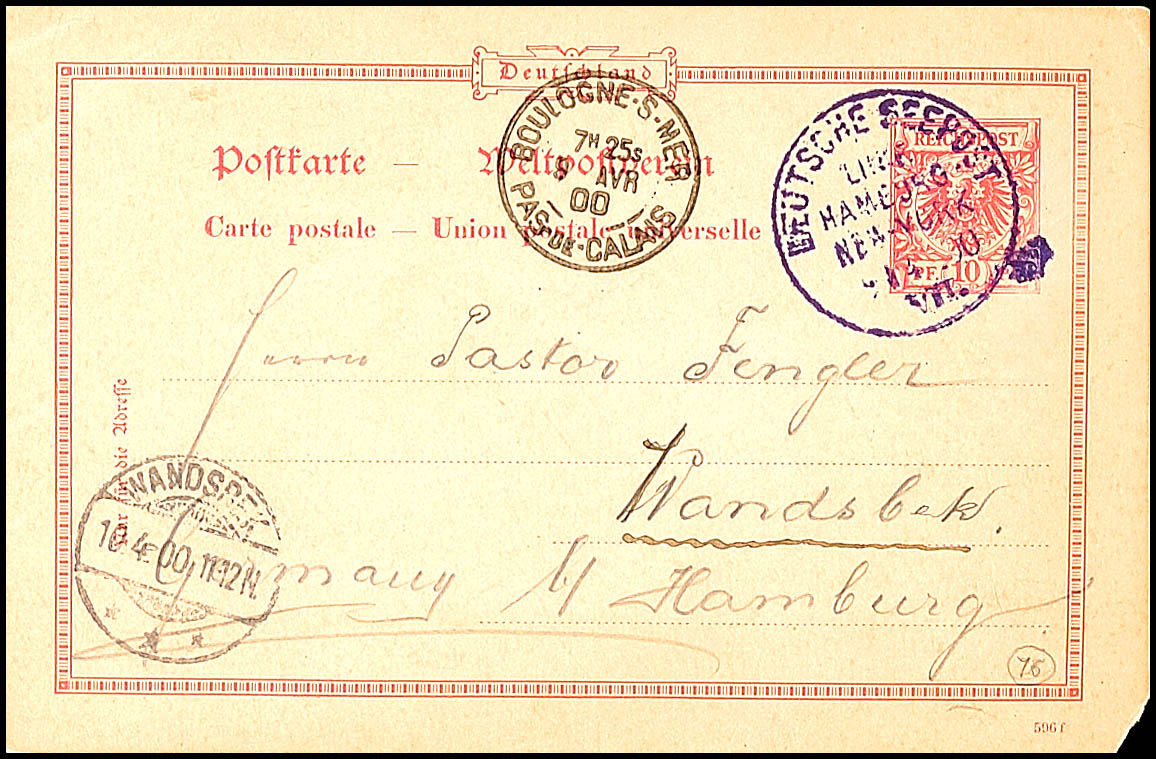 Deutschland
Postkarte — Weltpostverein
Carte postale — Union postale universelle
BOULOGNE-S-MER
7H 25S
AVR
00
PAS-DE-CALAIS
DEUTSCHE SEEPOST
LINIE
HAMBURG-
NEW-YORK
00
VIII.
REICHSPOST
PF. 10
Herrn Pastor Fengler
Wandsbek.
Germany b/ Hamburg
Nur für die Adresse
WANDSBEK
4 00 11-12N.
* * *
596 f